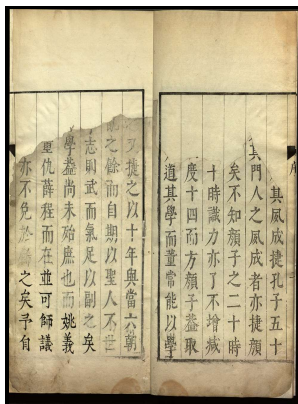 序
其夙成捷孔子五十
其門人之夙成者亦捷顏
矣不知顏子之二十時
十時識力亦了不增減
度十四而方顏子益取
道其學而葷常能以學
又捷之以十年與當六朝
之餘而自期以聖人不世
志則武而氣足以副之矣
學益尚未始廡也而姚義
里仇薛程而在並可師議
亦不免於 之矣予自